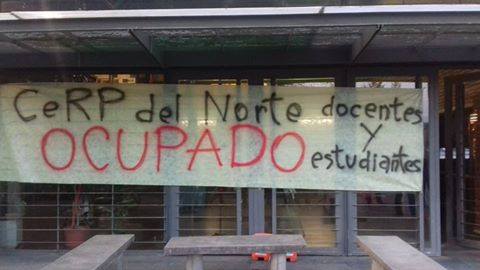 CeRP del Norte docentes
y
OCUPADO estudiantes